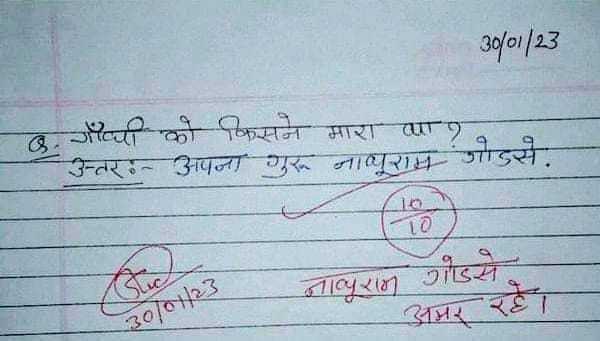 30/01/23
Q. गाँधी को किसने मारा था ?
उत्तर:- अपना गुरू नाथूराम गोडसे.
10/10
30/01/23
नाथूराम गोडसे
अमर रहे।